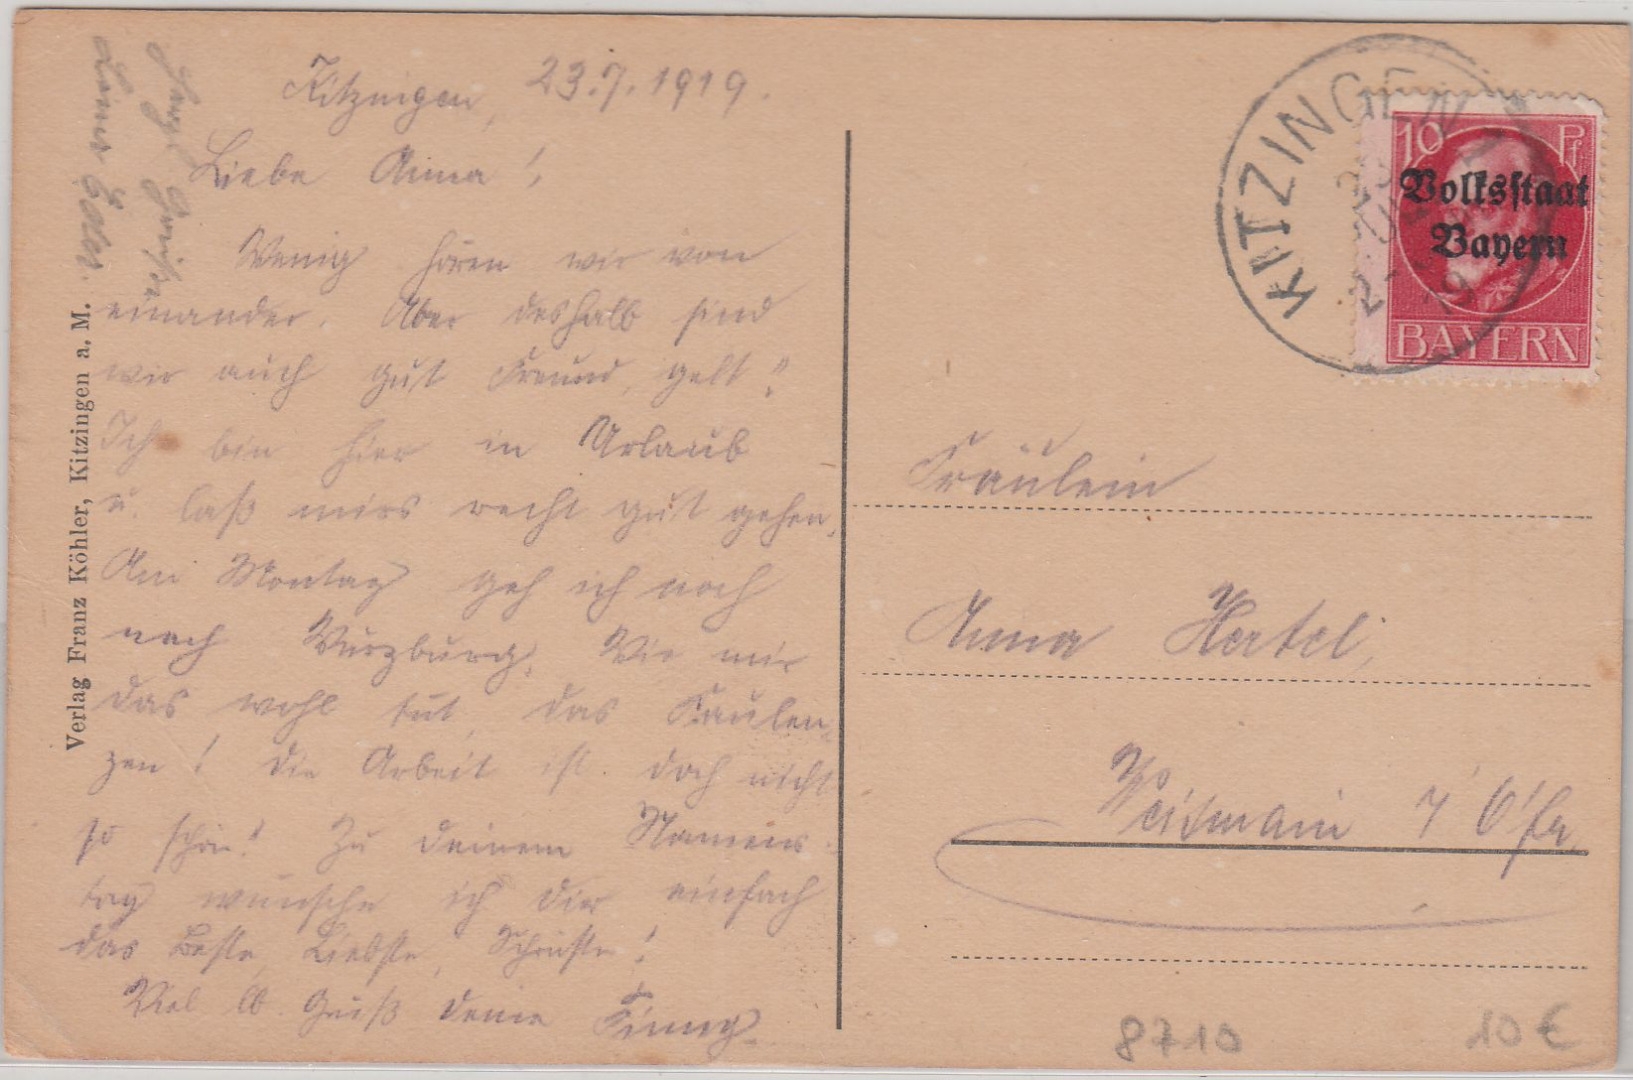 Kitzingen, 23.7.1919.
Liebe Anna!
Wenig hören wir von
einander. Aber deshalb sind
wir auch gut Freund, gelt?
Ich bin hier in Urlaub
u. laß mirs recht gut gehen.
Am Montag geh ich noch
nach Würzburg. Wie mir
das wohl tut, das Faulen
zen! Die Arbeit ist doch nicht
so schön! Zu deinem Namens-
tag wünsche ich dir einfach
das Beste, Liebste, Schönste!
Viel lb. Grüß deine
Grüße
Verlag Franz Köhler, Kitzingen a. M.
KITZINGEN
10 Pf
Volksstaat
Bayern
BAYERN
Fräulein
Anna Hertel,
Weismain / Ofr.
8710
10 €